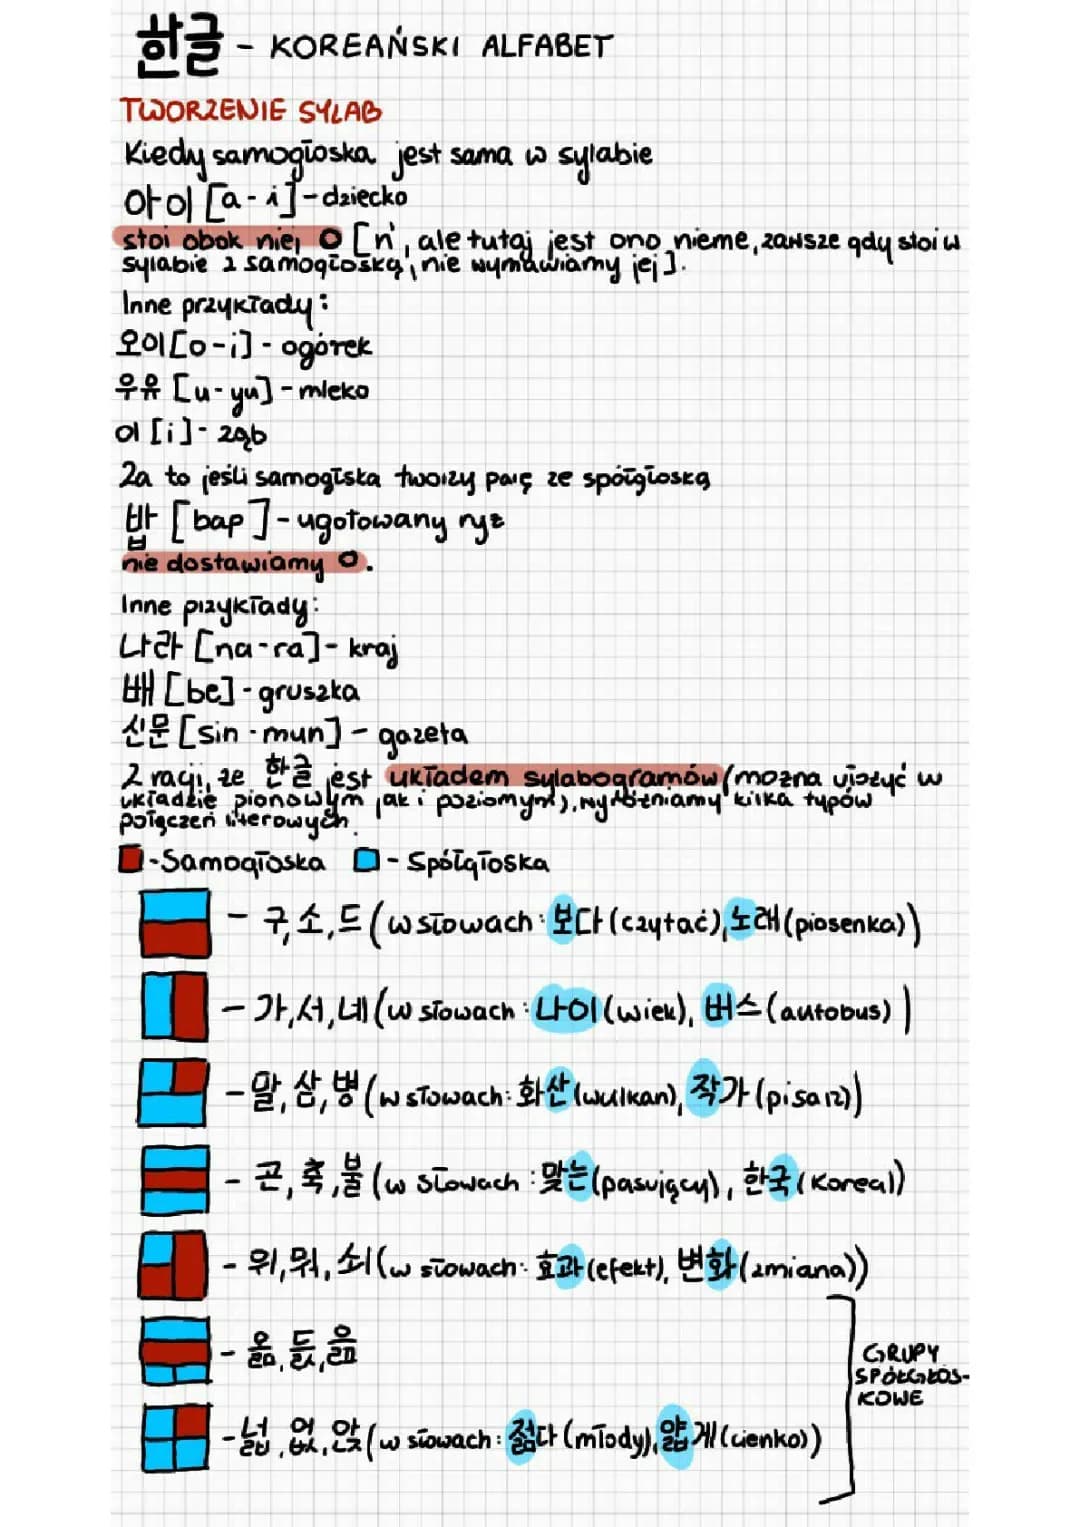 한글 - KOREAŃSKI ALFABET
TWORZENIE SYLAB
Kiedy samogłoska jest sama w sylabie
아이 [a-i] - dziecko
stoi obok niej ㅇ [ń, ale tutaj jest ono nieme, zawsze gdy stoi w
sylabie z samogłoską, nie wymawiamy jej].
Inne przykłady:
오이 [o-i] - ogórek
우유 [u-yu] - mleko
이 [i] - ząb
Za to jeśli samogłska tworzy parę ze spółgłoską
밥 [bap] - ugotowany ryż
nie dostawiamy ㅇ.
Inne przykłady:
나라 [na-ra] - kraj
배 [be] - gruszka
신문 [sin-mun] - gazeta
Z racji, że 한글 jest układem sylabogramów (można ułożyć w
układzie pionowym jak i poziomym), wyróżniamy kilka typów
połączeń literowych.
-Samogłoska - Spółgłoska
- 구, 소, 드 (w słowach: 보다 (czytać), 노래 (piosenka))
- 가, 서, 네 (w słowach: 나이 (wiek), 버스 (autobus))
- 말, 삼, 병 (w słowach: 화산 (wulkan), 작가 (pisarz))
- 곤, 축, 불 (w słowach: 맞는 (pasujący), 한국 (Korea))
- 위, 워, 쇠 (w słowach: 효과 (efekt), 변화 (zmiana))
- 옮, 듮, 읊
GRUPY
SPÓŁGŁOS-
KOWE
- 넓, 없, 앉 (w słowach: 젊다 (młody), 얇게 (cienko))